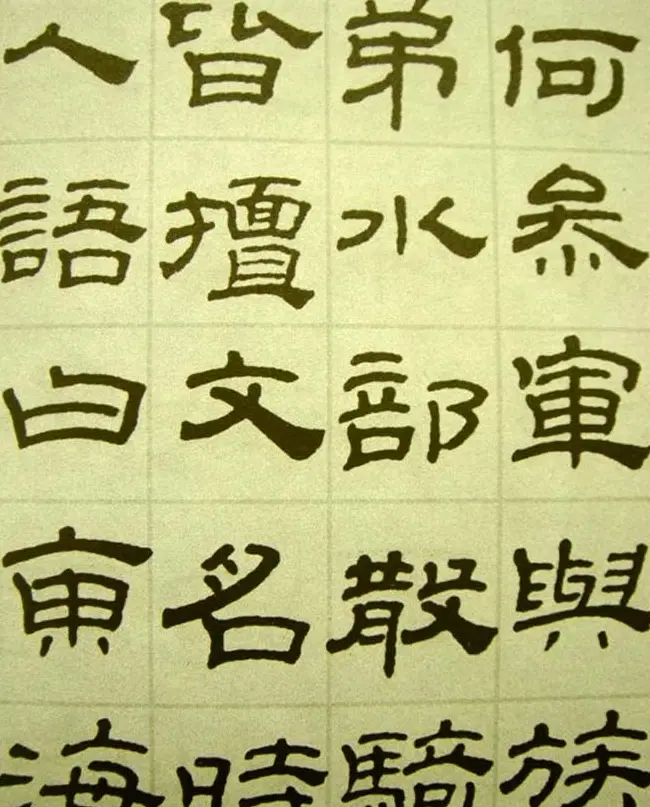 何參軍與族
弟水部散騎
皆擅文名時
人語曰東海